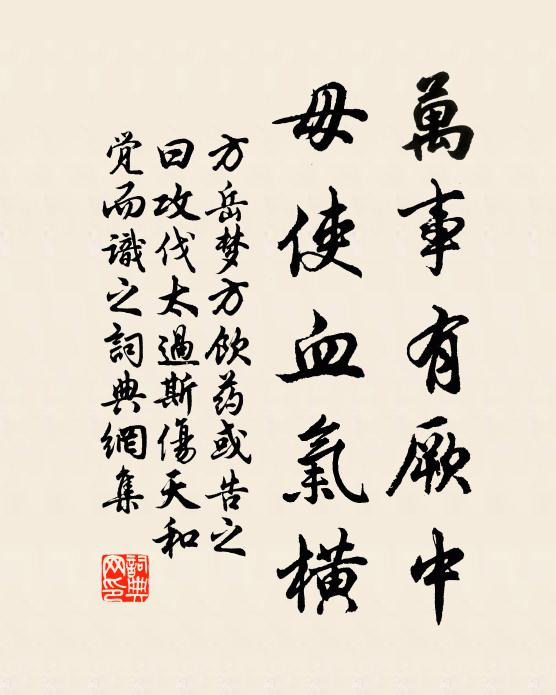 萬事有厥中
毋使血氣橫
方岳梦方飲药或告之
曰攻伐太過斯傷天和
觉而識之詞典網集
詞典网印